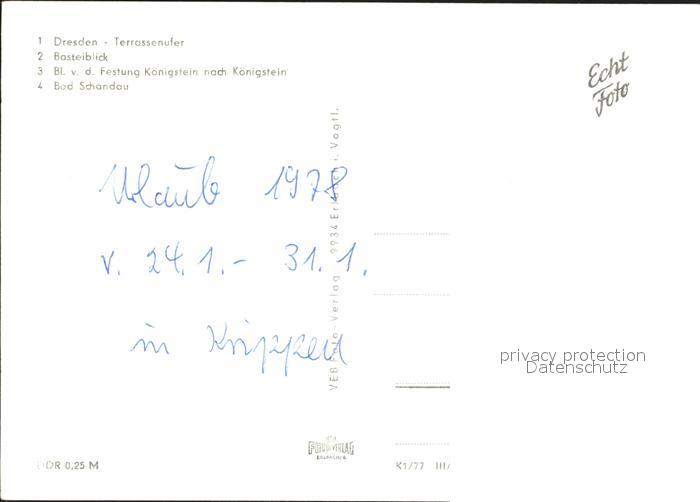 1 Dresden - Terrassenufer
2 Basteiblick
3 Bl. v. d. Festung Königstein nach Königstein
4 Bad Schandau
Echt Foto
Urlaub 1978
v. 24. 1. - 31. 1.
in
VEB Foto-Verlag 9934 Erlbach i. Vogtl.
privacy protection
Datenschutz
FOTO VERLAG
ERLBACH
DDR 0,25 M
K1/77 III/